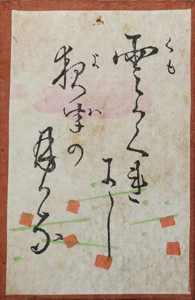 雲かくれ
くも
にし
夜半の
よは
月かな